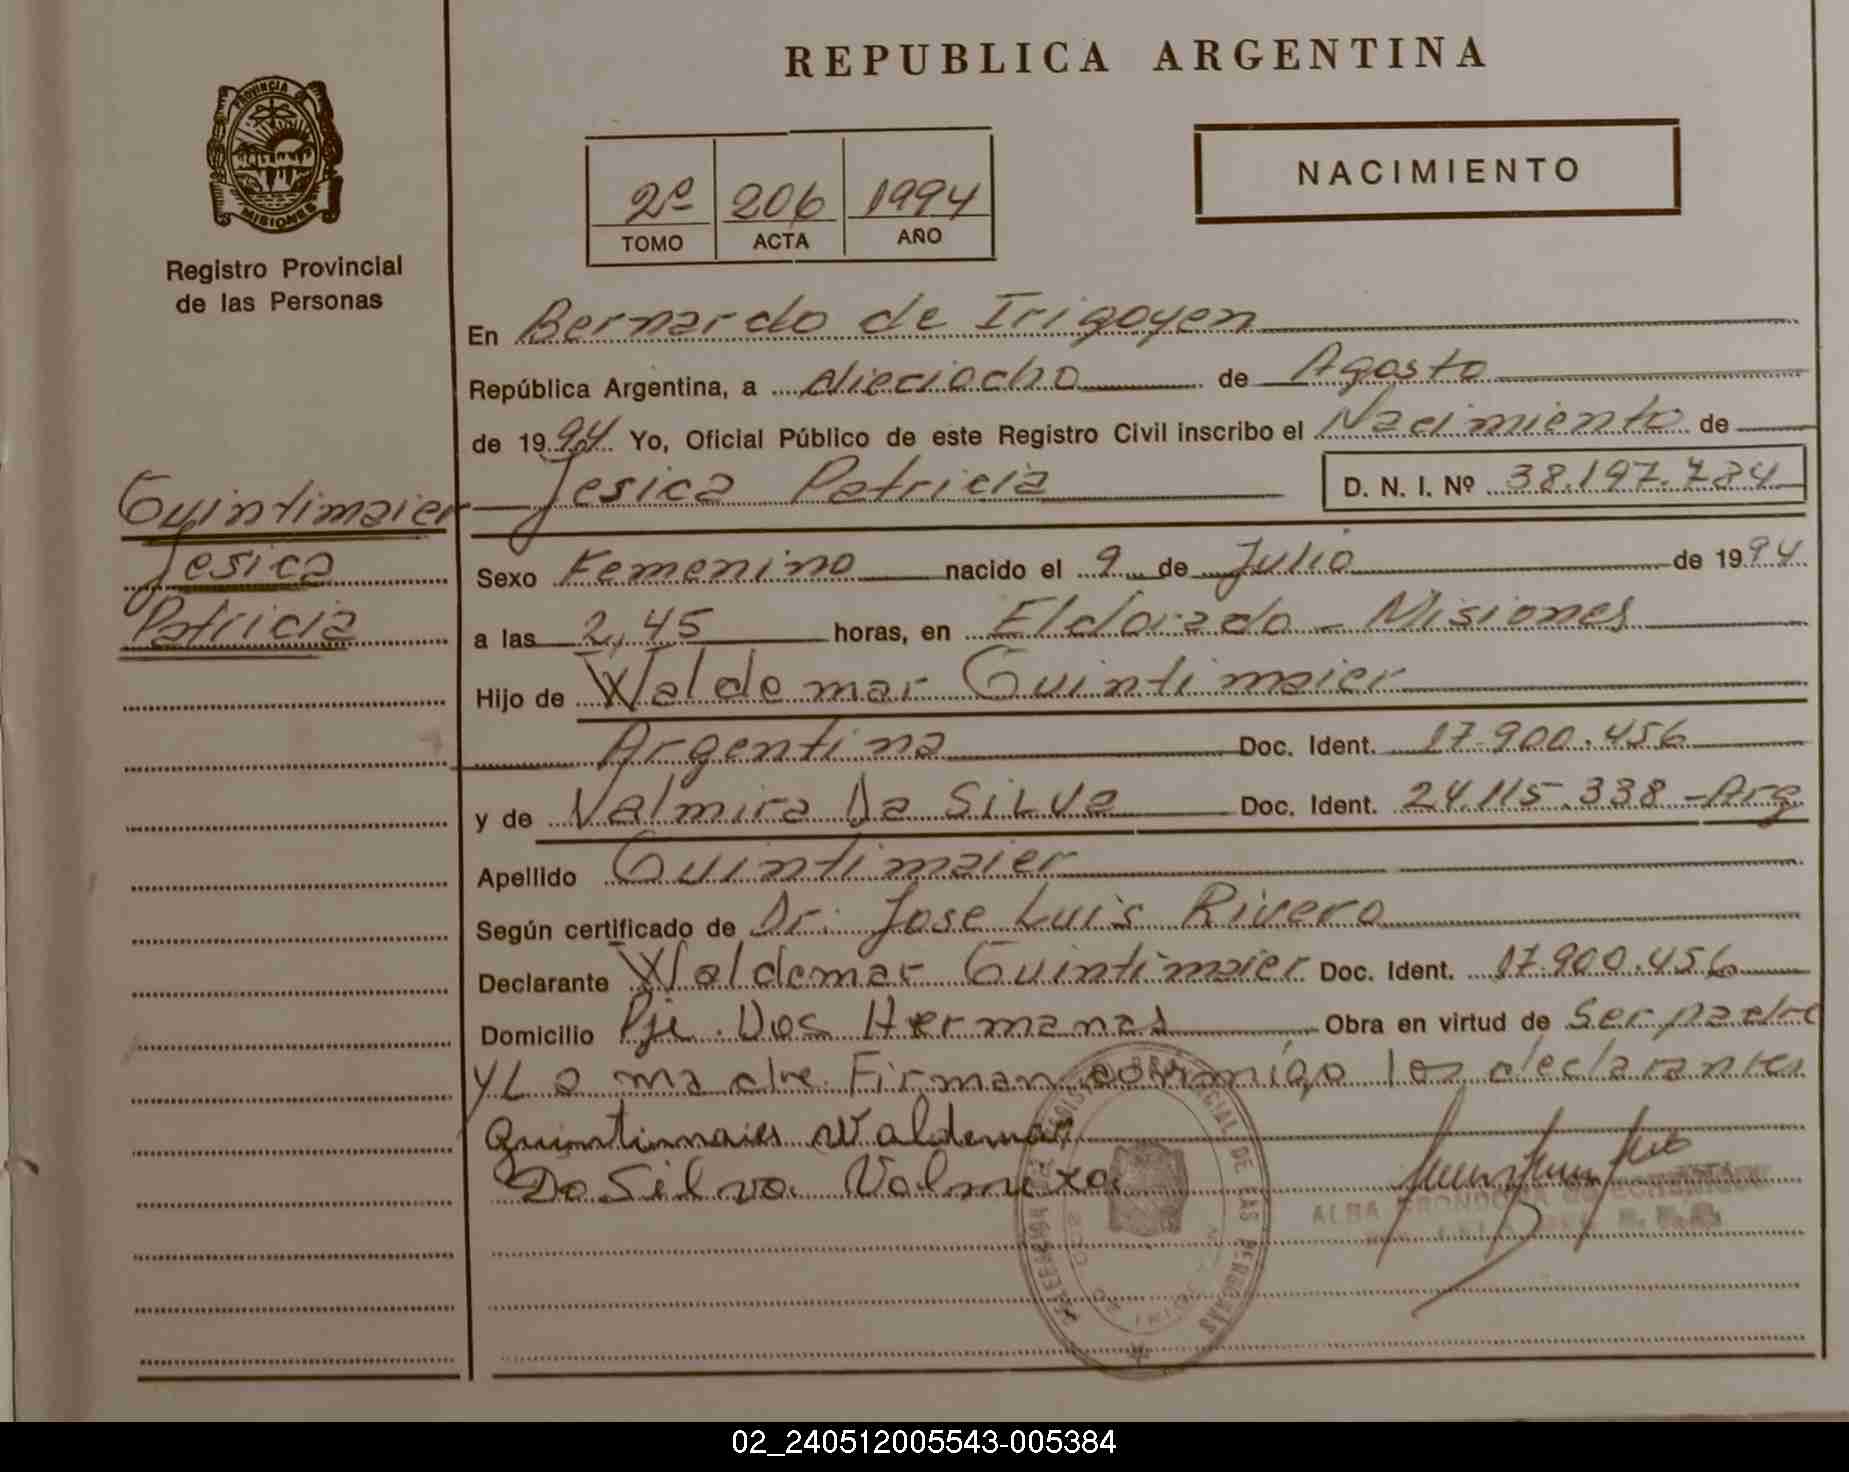 REPUBLICA ARGENTINA
PROVINCIA DE
MISIONES
Registro Provincial
de las Personas
2º 206 1994
TOMO ACTA AÑO
NACIMIENTO
En Bernardo de Irigoyen
República Argentina, a dieciocho de Agosto
de 1994. Yo, Oficial Público de este Registro Civil inscribo el Nacimiento de
Jesica Patricia D. N. I. Nº 38.197.784
Guintimaier
Jesica
Patricia
Sexo Femenino nacido el 9 de Julio de 1994
a las 2,45 horas, en Eldorado - Misiones
Hijo de Waldemar Guintimaier
Argentina Doc. Ident. 17.900.456
y de Valmira Da Silva Doc. Ident. 24.115.338 - Arg
Apellido Guintimaier
Según certificado de Dr. Jose Luis Rivero
Declarante Waldemar Guintimaier Doc. Ident. 17.900.456
Domicilio Pje. Dos Hermanas Obra en virtud de Ser padre
y La madre. Firman conmigo los declarantes
Quintimaier Waldemar
Da Silva Valmira
ALBA
02_240512005543-005384